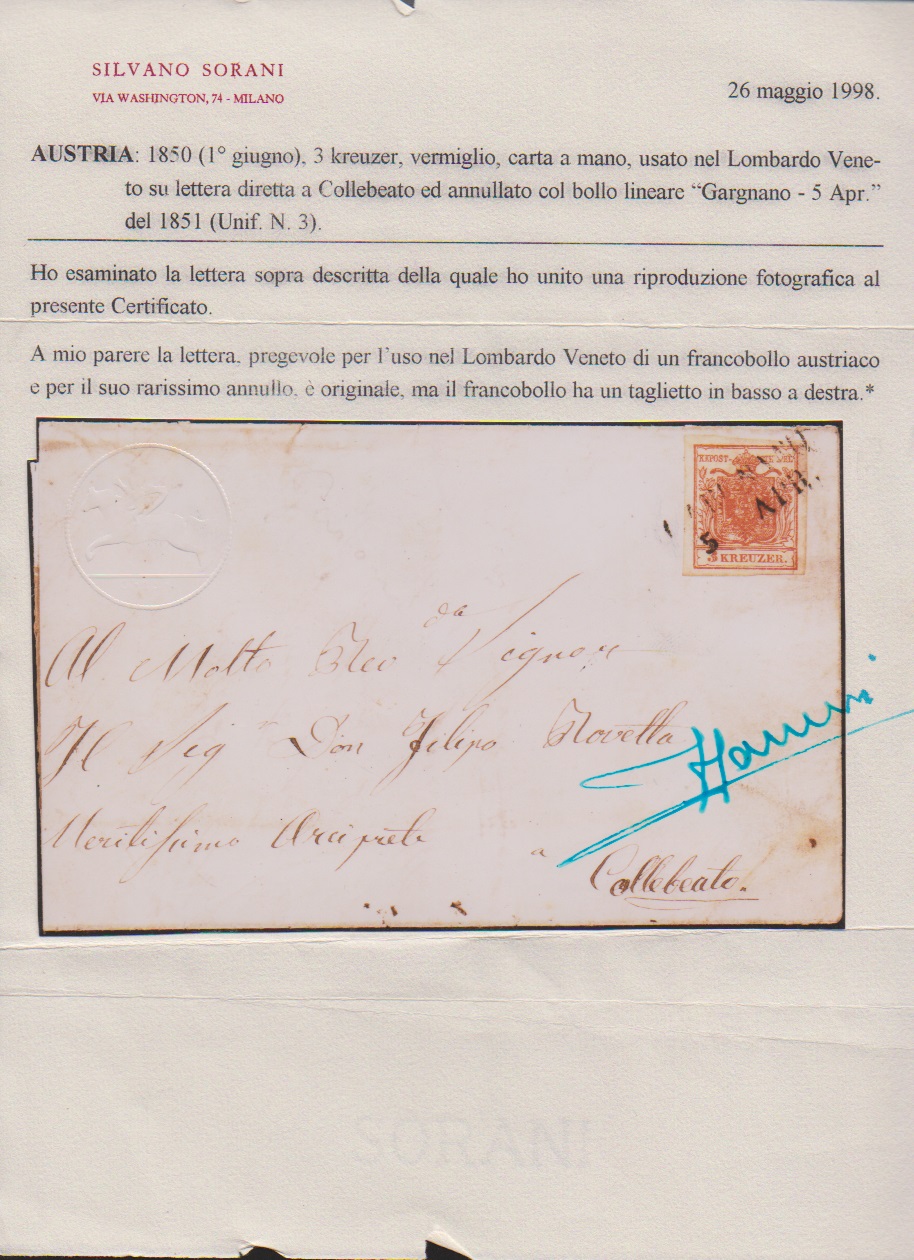 SILVANO SORANI
VIA WASHINGTON, 74 - MILANO
26 maggio 1998.
AUSTRIA: 1850 (1° giugno), 3 kreuzer, vermiglio, carta a mano, usato nel Lombardo Vene-
to su lettera diretta a Collebeato ed annullato col bollo lineare “Gargnano - 5 Apr.”
del 1851 (Unif. N. 3).
Ho esaminato la lettera sopra descritta della quale ho unito una riproduzione fotografica al
presente Certificato.
A mio parere la lettera, pregevole per l'uso nel Lombardo Veneto di un francobollo austriaco
e per il suo rarissimo annullo, è originale, ma il francobollo ha un taglietto in basso a destra.*
5 APR.
3 KREUZER.
Al Molto Rev da Signore
Il Sig r Don Filipo Novella
Meritissimo Arciprete
a
Collebeato.
SORANI